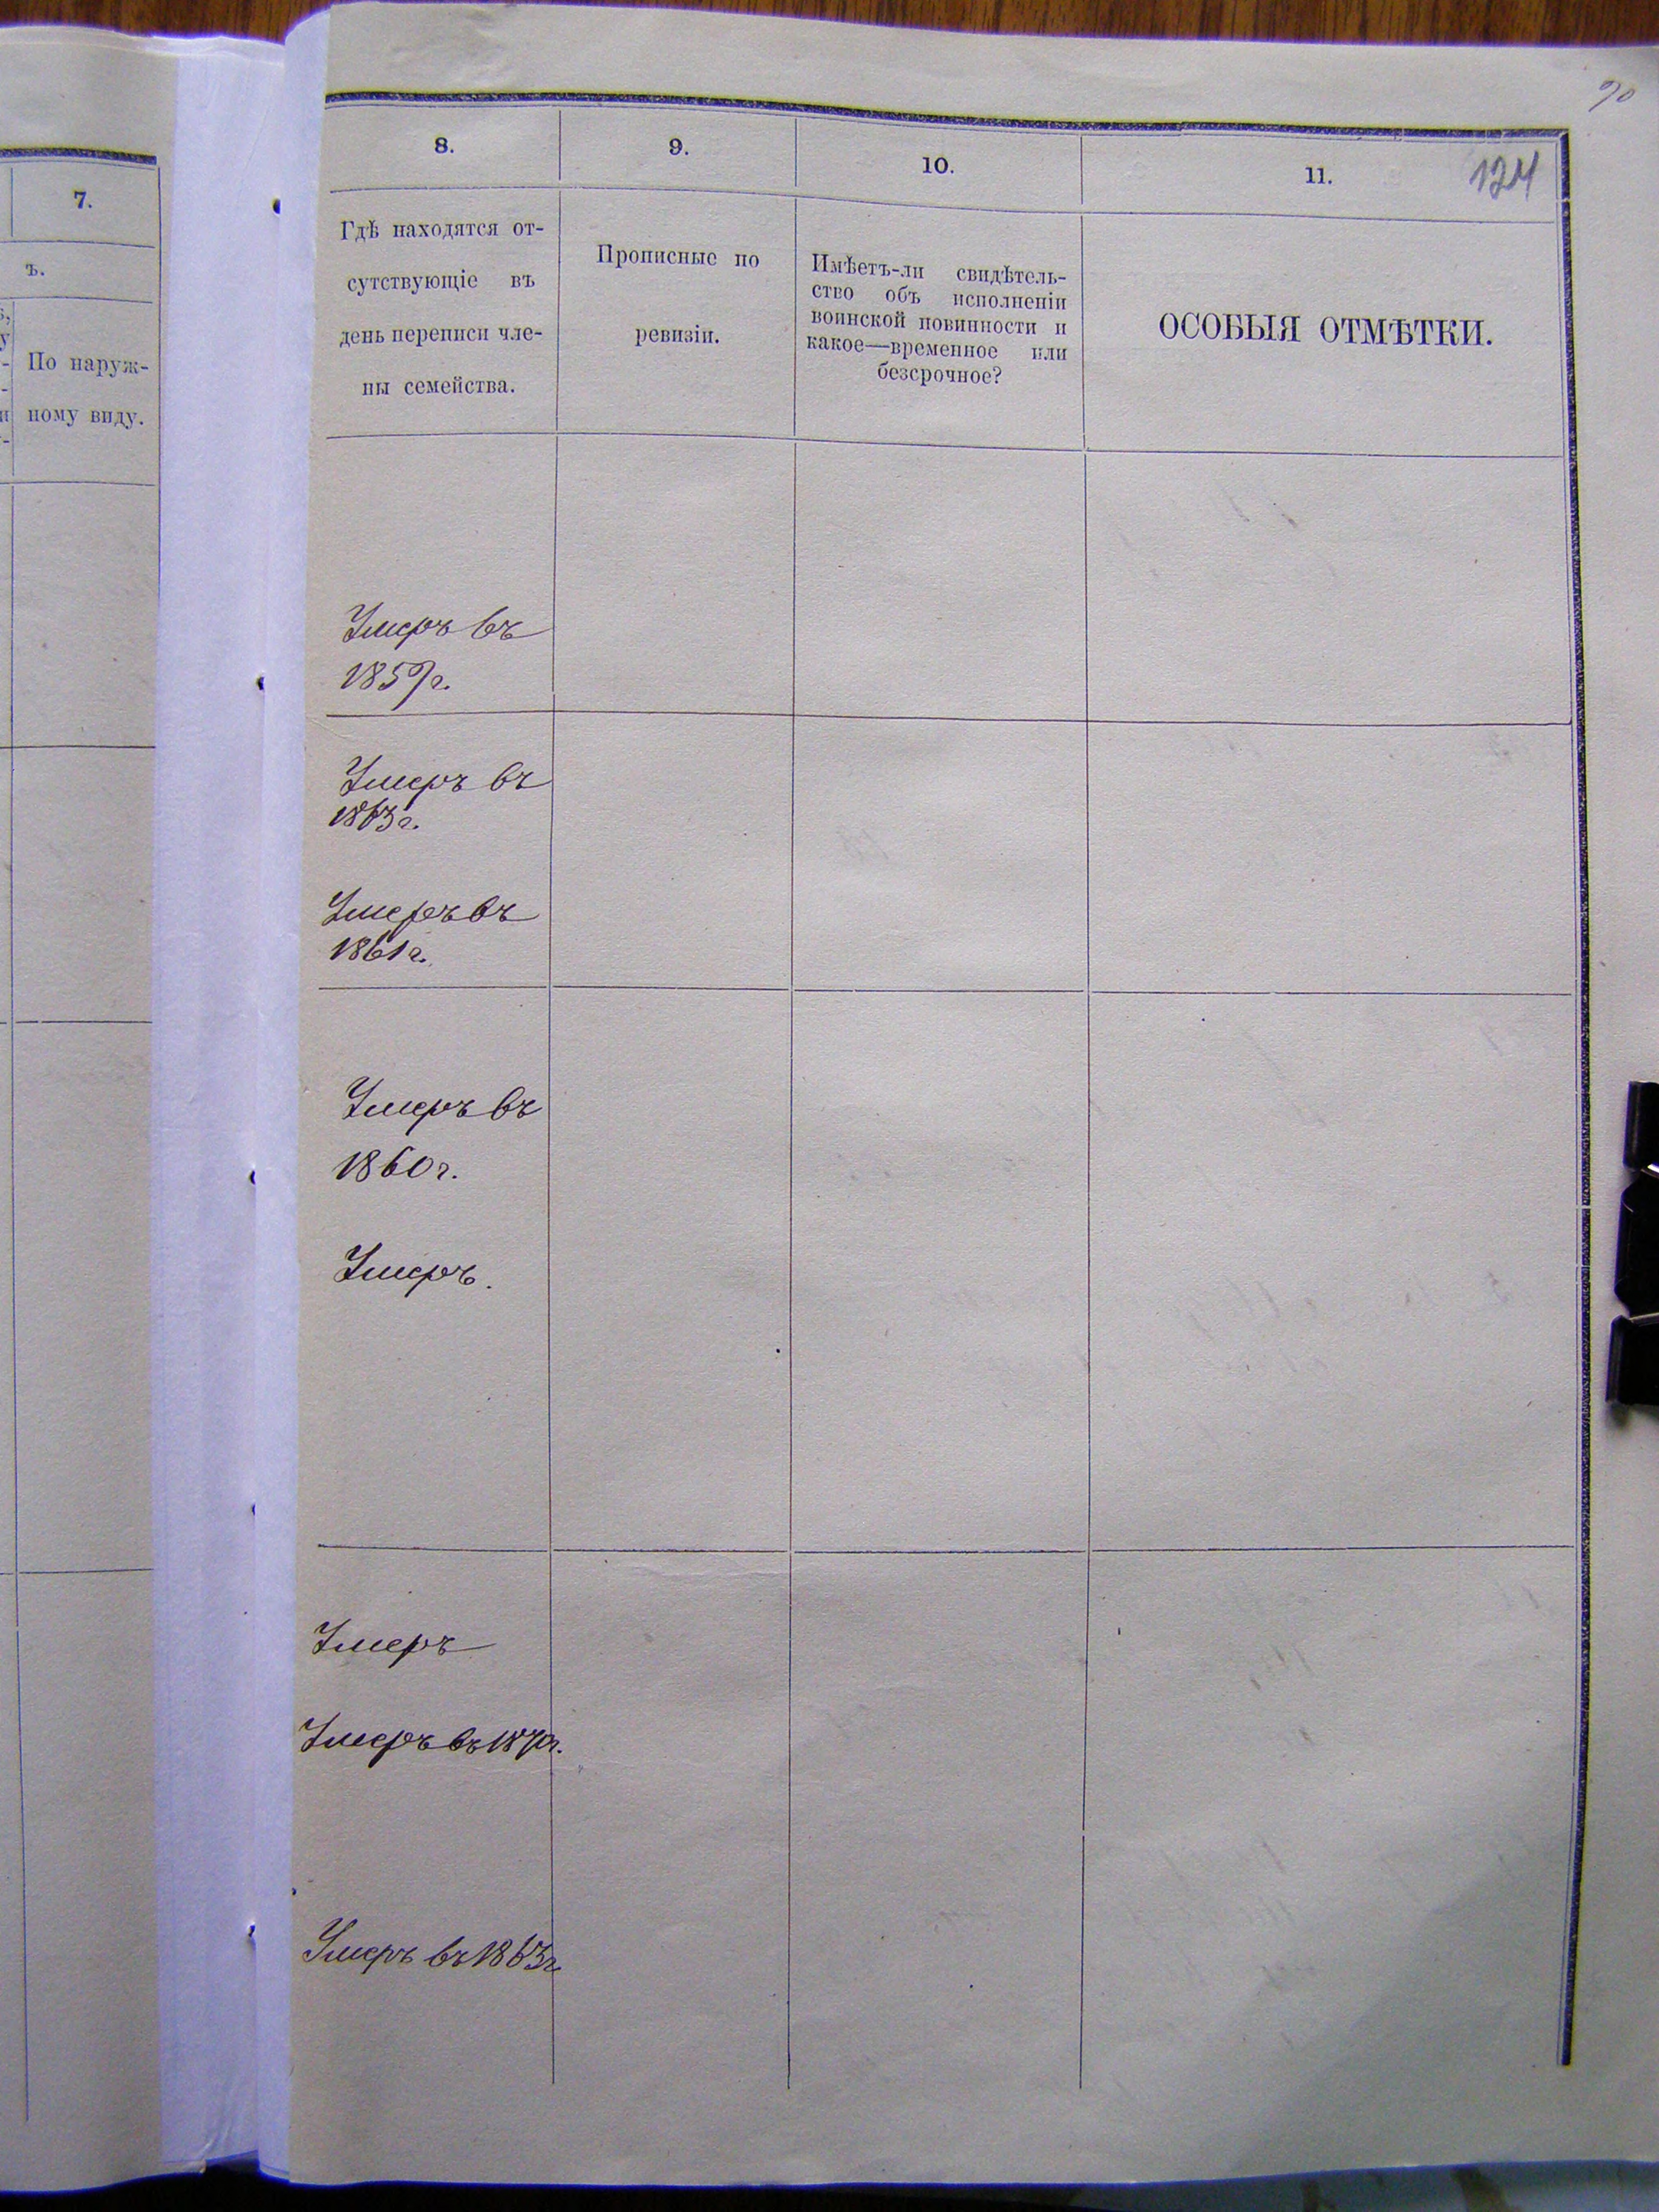 7.
ъ.
По наруж-
ному виду.
90
124
8.
9.
10.
11.
Гдѣ находятся от-
сутствующіе въ
день переписи чле-
ны семейства.
Прописные по
ревизіи.
Имѣетъ-ли свидѣтель-
ство объ исполненіи
воинской повинности и
какое—временное или
безсрочное?
ОСОБЫЯ ОТМѢТКИ.
Умеръ въ
1859г.
Умеръ въ
1863г.
Умеръ въ
1861г.
Умеръ въ
1860г.
Умеръ.
Умеръ
Умеръ въ 1870г.
Умеръ въ 1863г.